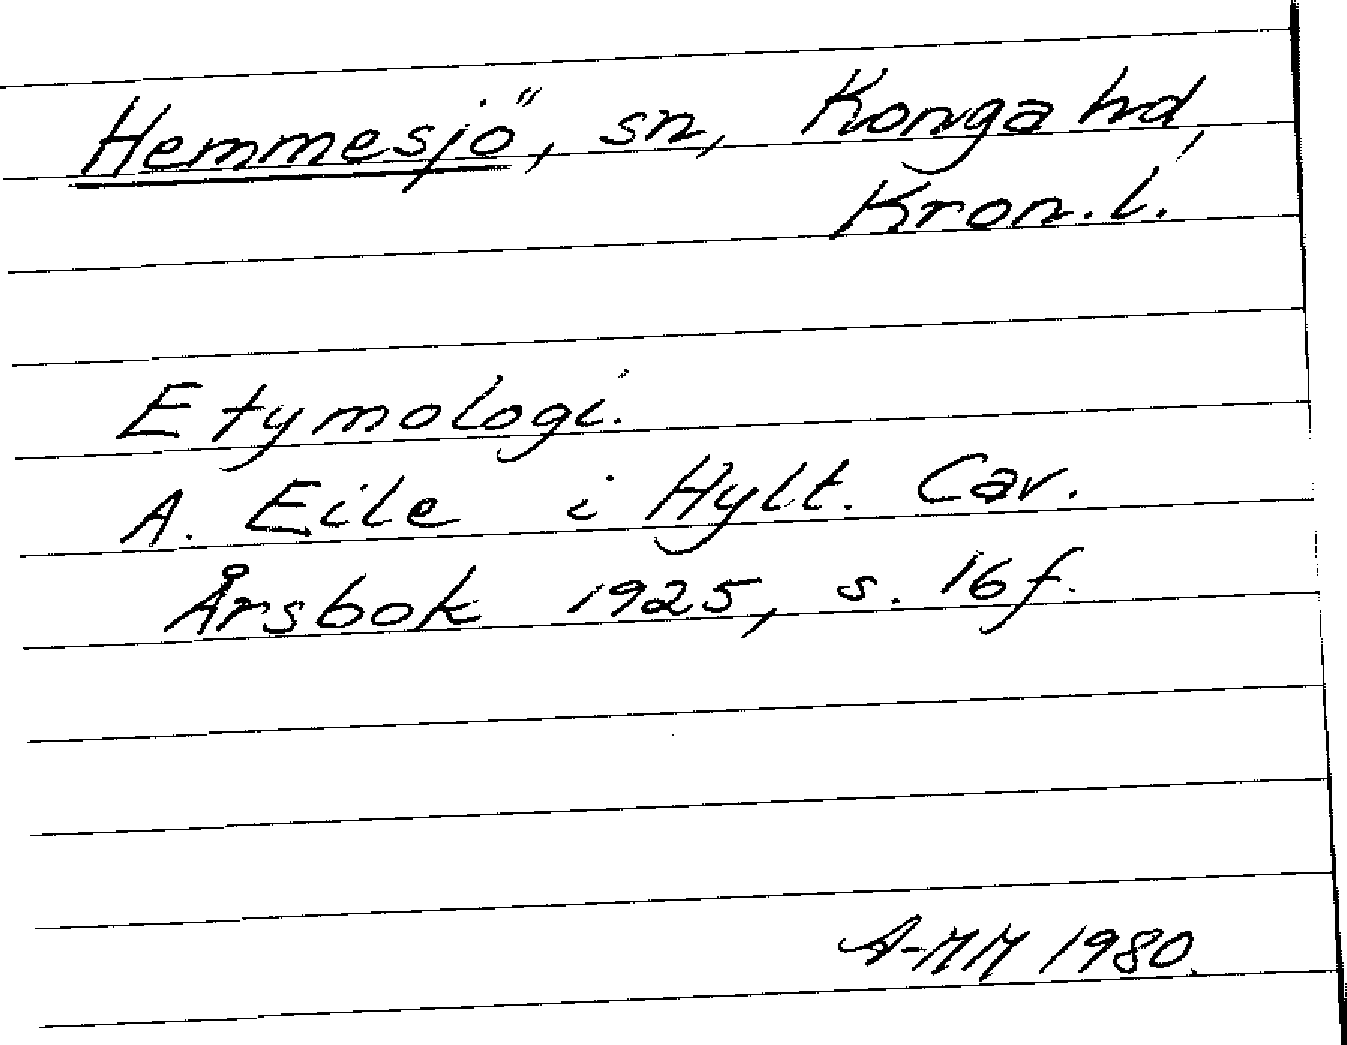 Hemmesjö, sn, Konga hd,
Kron. l.
Etymologi.
A. Eile i Hylt. Cav.
Årsbok 1925, s. 16 f.
A-MM 1980.